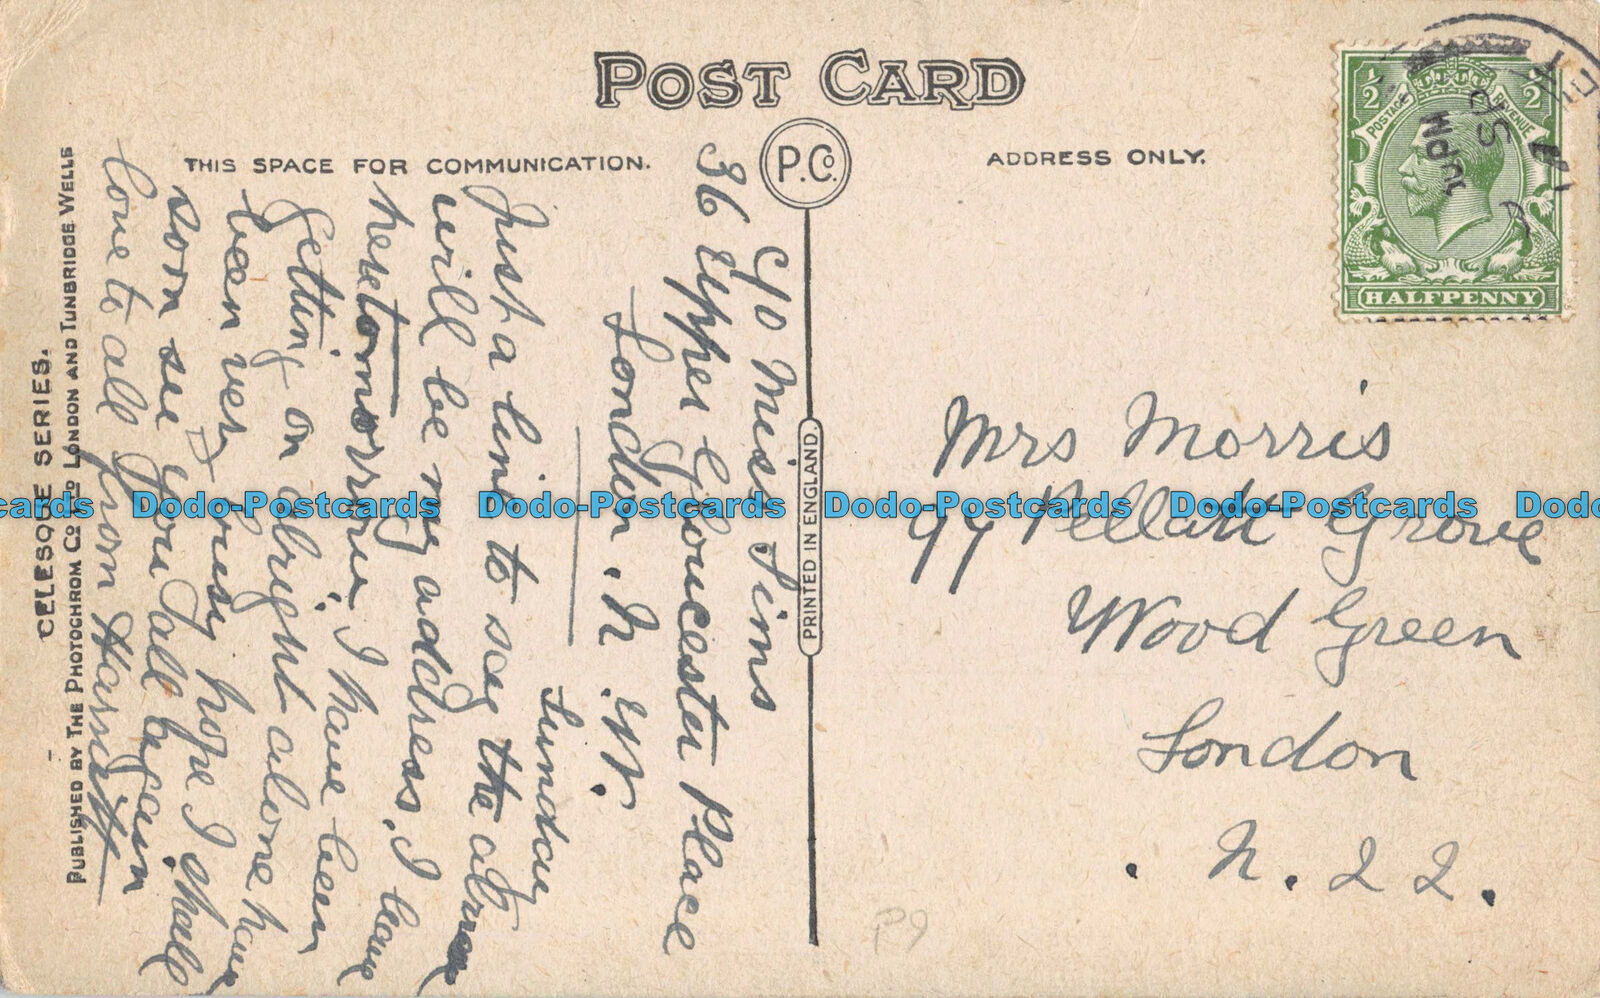 POST CARD
THIS SPACE FOR COMMUNICATION.
P. Co.
ADDRESS ONLY.
POSTAGE
REVENUE
1/2
1/2
HALFPENNY
C/o Miss Sims
36 Upper Gloucester Place
London. N.W.
Sunday
Just a line to say the above
will be my address, I leave
here tomorrow, I have been
getting on alright alone have
been very busy hope I shall
soon see you all again
love to all from Harriett
CELESQUE SERIES.
PUBLISHED BY THE PHOTOCHROM Co LTD LONDON AND TUNBRIDGE WELLS
PRINTED IN ENGLAND.
Mrs Morris
99 Pellatt Grove
Wood Green
London
N. 22.
P9
Dodo-Postcards Dodo-Postcards Dodo-Postcards Dodo-Postcards